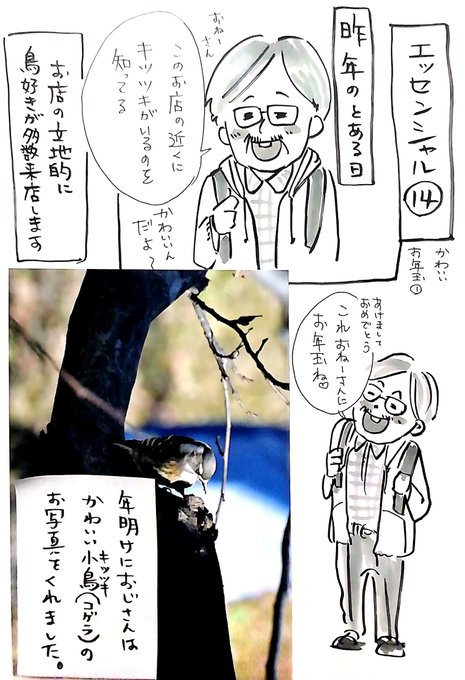 エッセンシャル⑭
かわいい
お年玉①
昨年のとある日
おねーさん
このお店の近くに
キツツキがいるのを
知ってる
かわいいん
だよ〜
お店の立地的に
鳥好きが多数来店します
あけまして
おめでとう
これ おねーさんに
お年玉ね♡
年明けにおじさんは
かわいい小鳥(コゲラ)の
キツツキ
お写真をくれました。